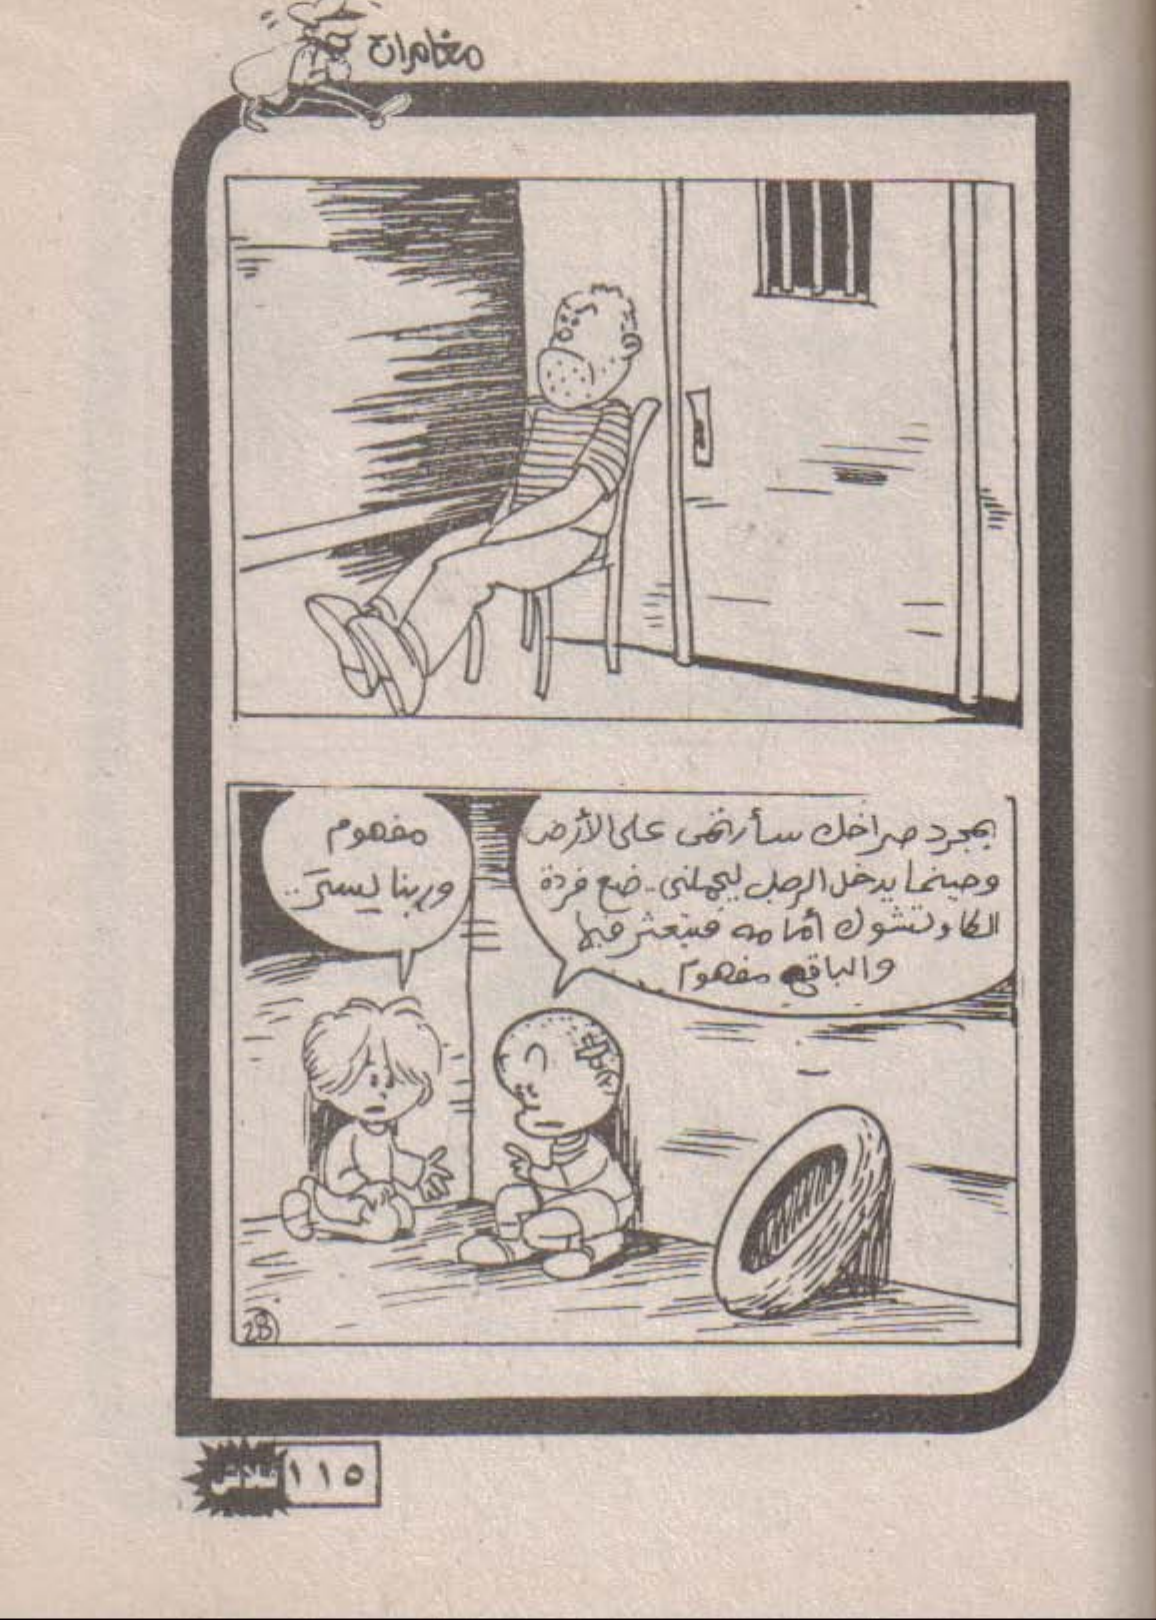 مغامرات
بمجرد صراخك سأرتمى على الأرض
وحينما يدخل الرجل ليحملنى.. ضع فردة
الكاوتشوك أمامه فيتعثر فيها
والباقى مفهوم..
مفهوم
وربنا يستر..
28
١١٥
فلاش